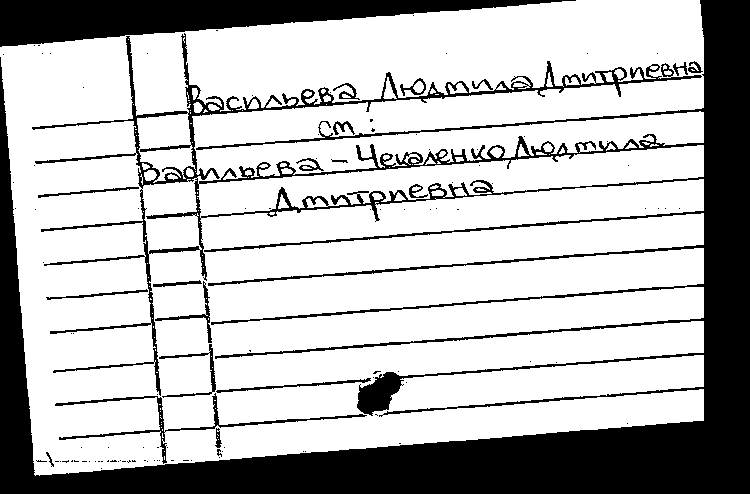 Васильева, Людмила Дмитриевна
см.:
Васильева – Чекаленко, Людмила
Дмитриевна